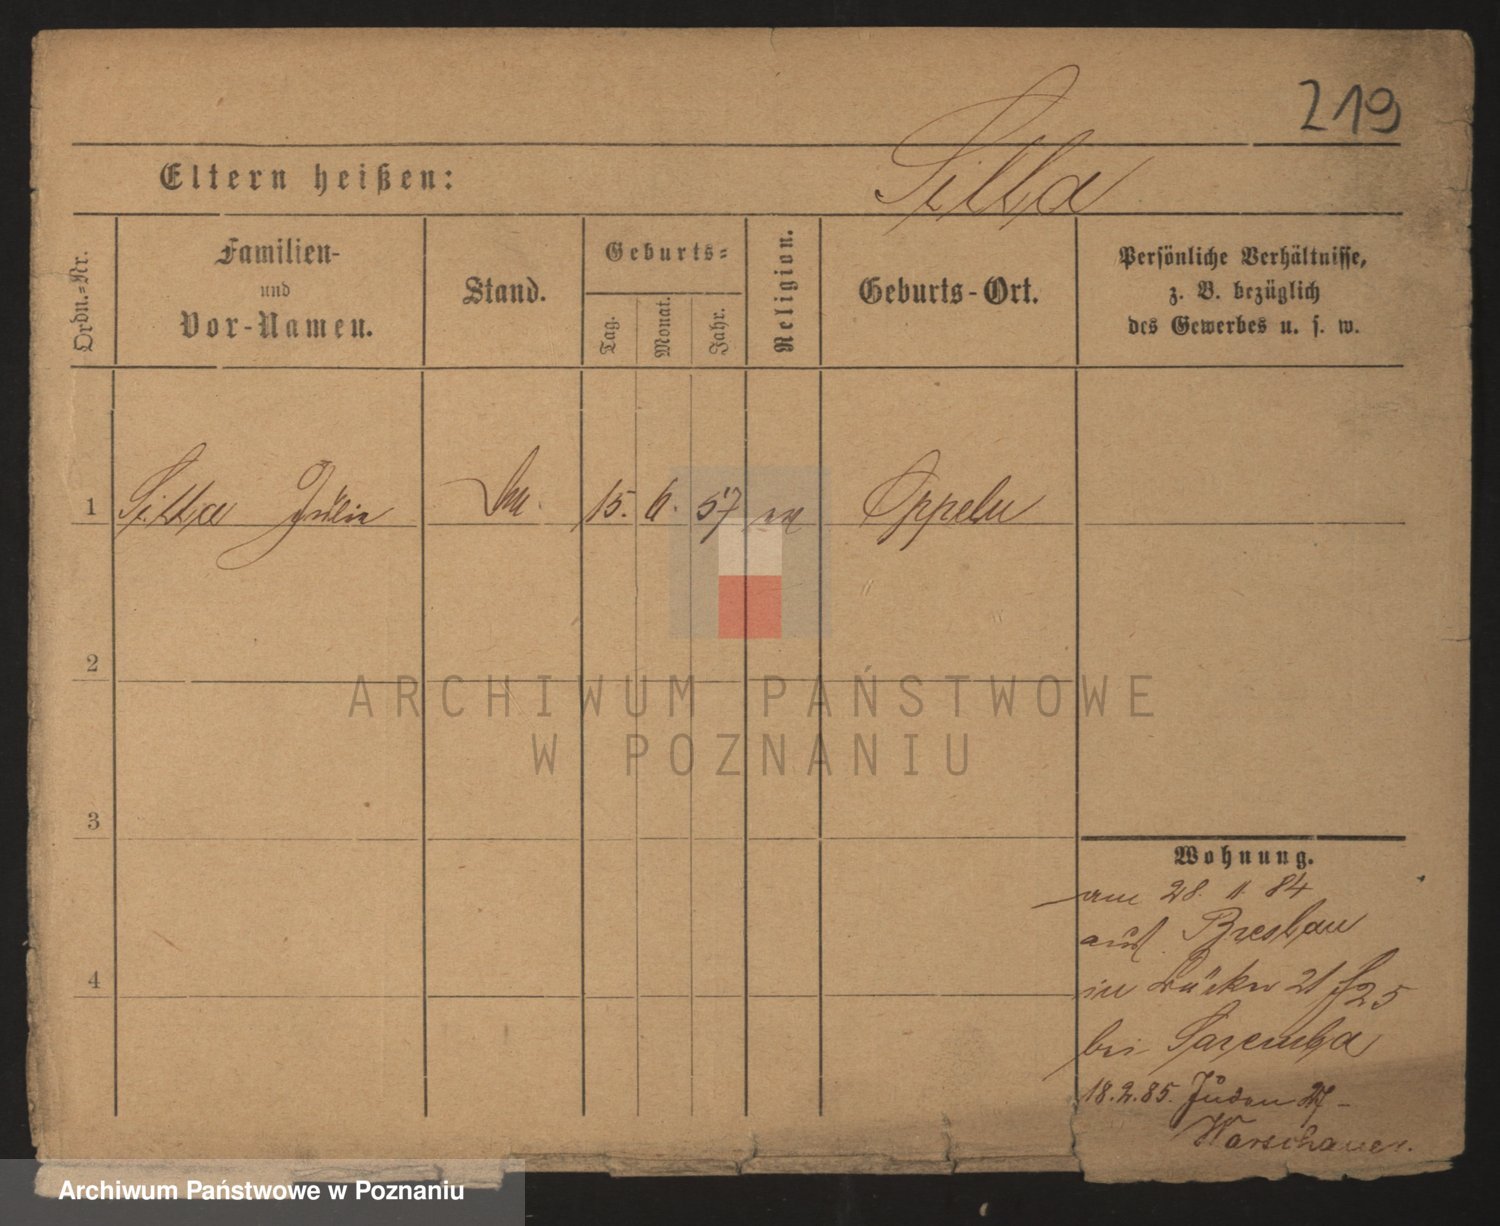 219
Eltern heißen:
Sitta
Ordn.-Nr.
Familien-
und
Vor-Namen.
Stand.
Geburts-
Tag.
Monat.
Jahr.
Religion.
Geburts-Ort.
Persönliche Verhältnisse,
z. B. bezüglich
des Gewerbes u. s. w.
1 Sitta Julie 15. 6. 57 Oppeln
2
3
4
Wohnung.
am 28. 11. 84
aus Breslau
in Bäcker 21/25
bei Saremba
18.2.85. Juden 27
Warschauer.
ARCHIWUM PAŃSTWOWE
W POZNANIU
Archiwum Państwowe w Poznaniu